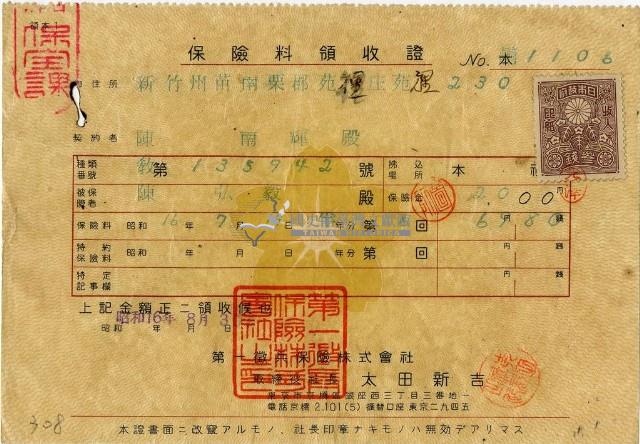 領本1
保險料領收證
No. 本 1106
住所 新竹州苗南栗郡苑裡庄苑裡230
契約者 陳南輝殿
種類番號 第 教135942 號 拂込場所 本社
被保險者 陳弘毅 殿 保險金 20.00 円
保險料 昭和 16年 7月 日 年分 第 回 6980 円 錢
特約保險料 昭和 年 月 日 年分 第 回 円 錢
特定記事欄
上記金額正ニ領收候也
昭和16年 8月 3
昭和 年 月 日
第一徵兵保險株式會社
取締役社長 太田新吉
東京市京橋區銀座西三丁目三番地一
電話京橋 2.101(5) 振替口座東京二九四五
308
本證書面ニ改竄アルモノ、社長印章ナキモノハ無効デアリマス
大日本帝國政府
收入印紙
參錢
第一徵兵保險株式會社之印
TAIWAN HISTORICA